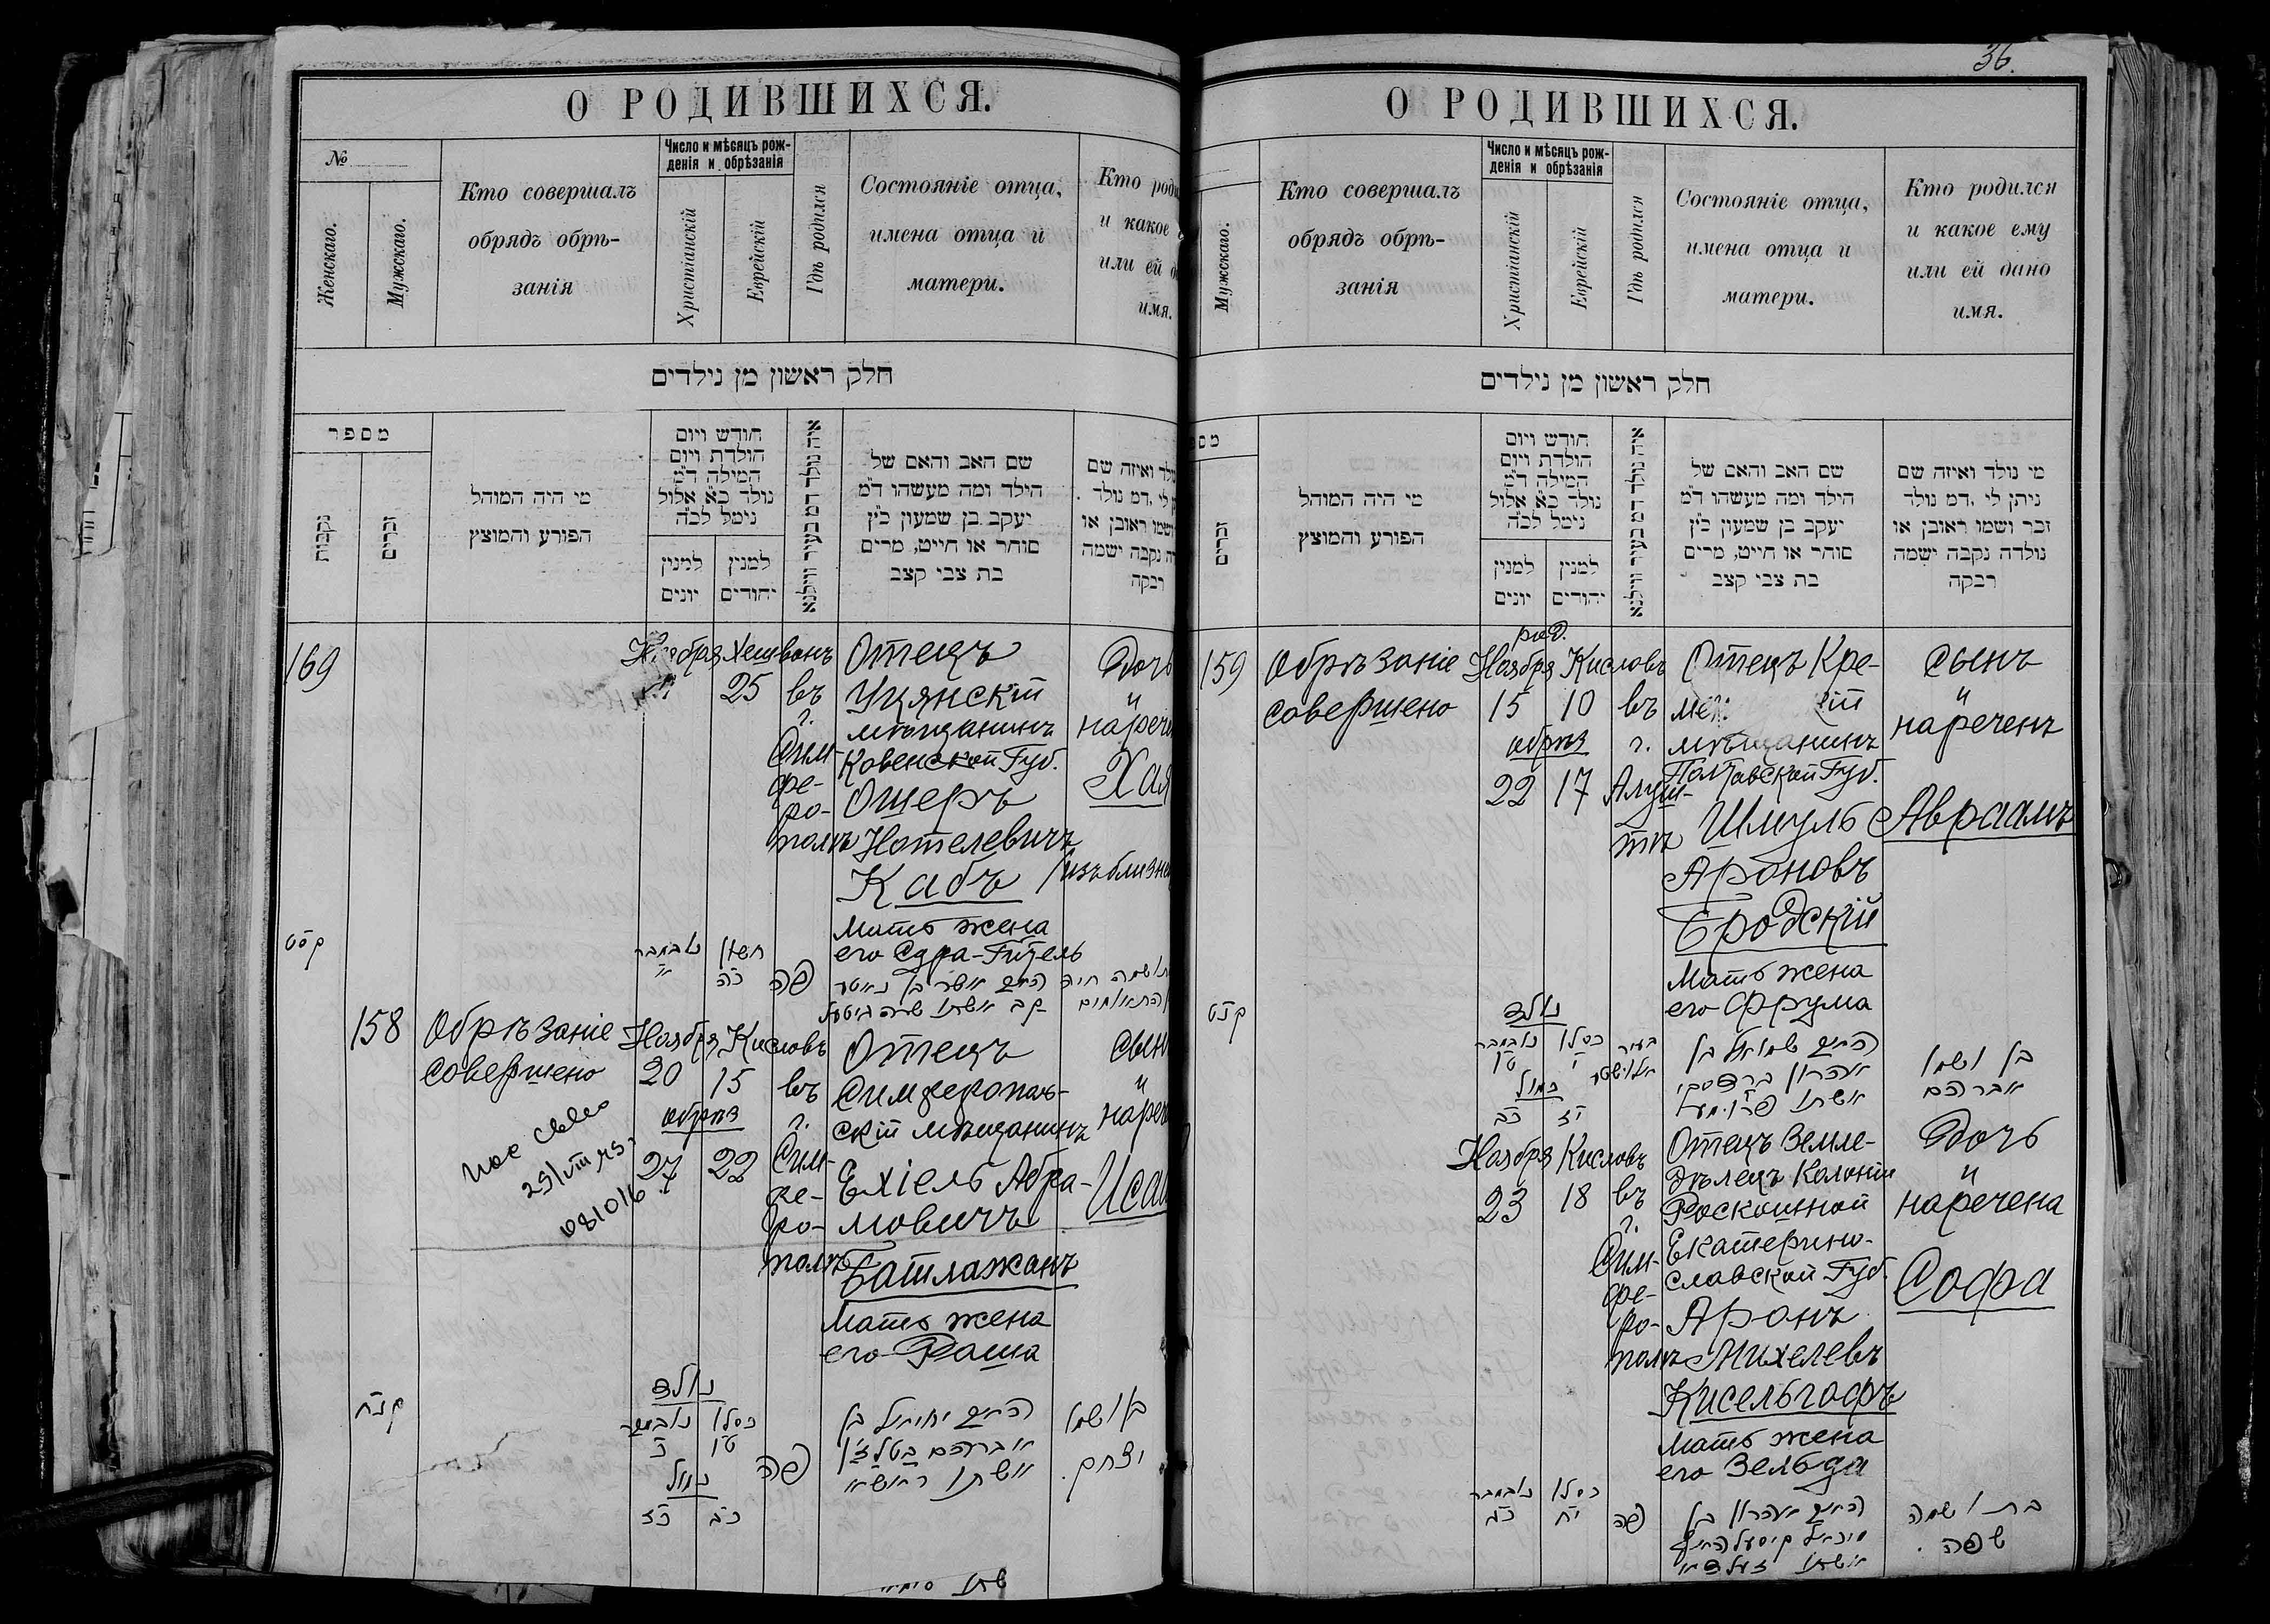 О РОДИВШИХСЯ.
№
Женскаго.
Мужскаго.
Кто совершалъ
обрядъ обрѣ-
занія
Число и мѣсяцъ рож-
денія и обрѣзанія
Христіанскій
Еврейскій
Гдѣ родился
Состояніе отца,
имена отца и
матери.
Кто роди
и какое
или ей д
имя.
חלק ראשון מן נילדים
מספר
נקבות
זכרים
מי היה המוהל
הפורע והמוצץ
חודש ויום
הולדת ויום
המילה ד״מ
נולד כ״א אלול
נימל לכ״ה
למנין
יונים
למנין
יהודים
שם האב והאם של
הילד ומה מעשהו ד״מ
יעקב בן שמעון כ״ץ
סוחר או חייט, מרים
בת צבי קצב
ולד ואיזה שם
לי ,דמ נולד
ושמו ראובן או
ה נקבה ישמה
רבקה
169
Ноября Хешвонъ
25
въ
г.
Сим-
фе-
ро-
полѣ
Отецъ
Уцянскій
мѣщанинъ
Ковенской Губ.
Ошеръ
Нотелевичъ
Кабъ
Мать жена
его Сора-Гитель
Дочь
и
нарече
Хая
/изъ близне
קסט
נאבמבר
חשון
כה
פה
158
Обрѣзаніе
совершено
Ноября Кисловъ
20 15
обрѣз
27 22
въ
г.
Сим-
фе-
ро-
полѣ
Отецъ
Симферополь-
скій мѣщанинъ
Ехіель Абра-
мовичъ
Батлажанъ
Мать жена
его Раша
сынъ
и
нареч
Исаа
קנח
נולד
נאבמבר
כסלו
כ
טו
נמול
כז
כב
פה
יחיאל בן
אברהם
בן ושמו
יצחק.
36.
О РОДИВШИХСЯ.
Мужскаго.
Кто совершалъ
обрядъ обрѣ-
занія
Число и мѣсяцъ рож-
денія и обрѣзанія
Христіанскій
Еврейскій
Гдѣ родился
Состояніе отца,
имена отца и
матери.
Кто родился
и какое ему
или ей дано
имя.
חלק ראשון מן נילדים
מס
זכרים
מי היה המוהל
הפורע והמוצץ
חודש ויום
הולדת ויום
המילה ד״מ
נולד כ״א אלול
נימל לכ״ה
למנין
יונים
למנין
יהודים
שם האב והאם של
הילד ומה מעשהו ד״מ
יעקב בן שמעון כ״ץ
סוחר או חייט, מרים
בת צבי קצב
מי נולד ואיזה שם
ניתן לי ,דמ נולד
זכר ושמו ראובן או
נולדה נקבה ישמה
רבקה
159
Обрѣзаніе
совершено
род.
Ноября Кисловъ
15 10
обрѣз
22 17
въ
г.
Алуш-
тѣ
Отецъ Кре-
мен кій
мѣщанинъ
Полтавской Губ.
Шмуль
Ароновъ
Бродскій
Мать жена
его Фрума
сынъ
и
нареченъ
Авраамъ
קנט
נולד
נאבמבר
כסלו
טו
י
נמול
כב
יז
שמואל בן
אהרון
בן ושמו
אברהם
Ноября Кисловъ
23 18
въ
г.
Сим-
фе-
ро-
полѣ
Отецъ Земле-
дѣлецъ Колоніи
Роскошной
Екатерино-
славской Губ.
Аронъ
Михелевъ
Кисельгофъ
Мать жена
его Зельда
Дочь
и
наречена
Софа
נאבמבר
כסלו
כג
יח
פה
אהרון בן
בת ושמה